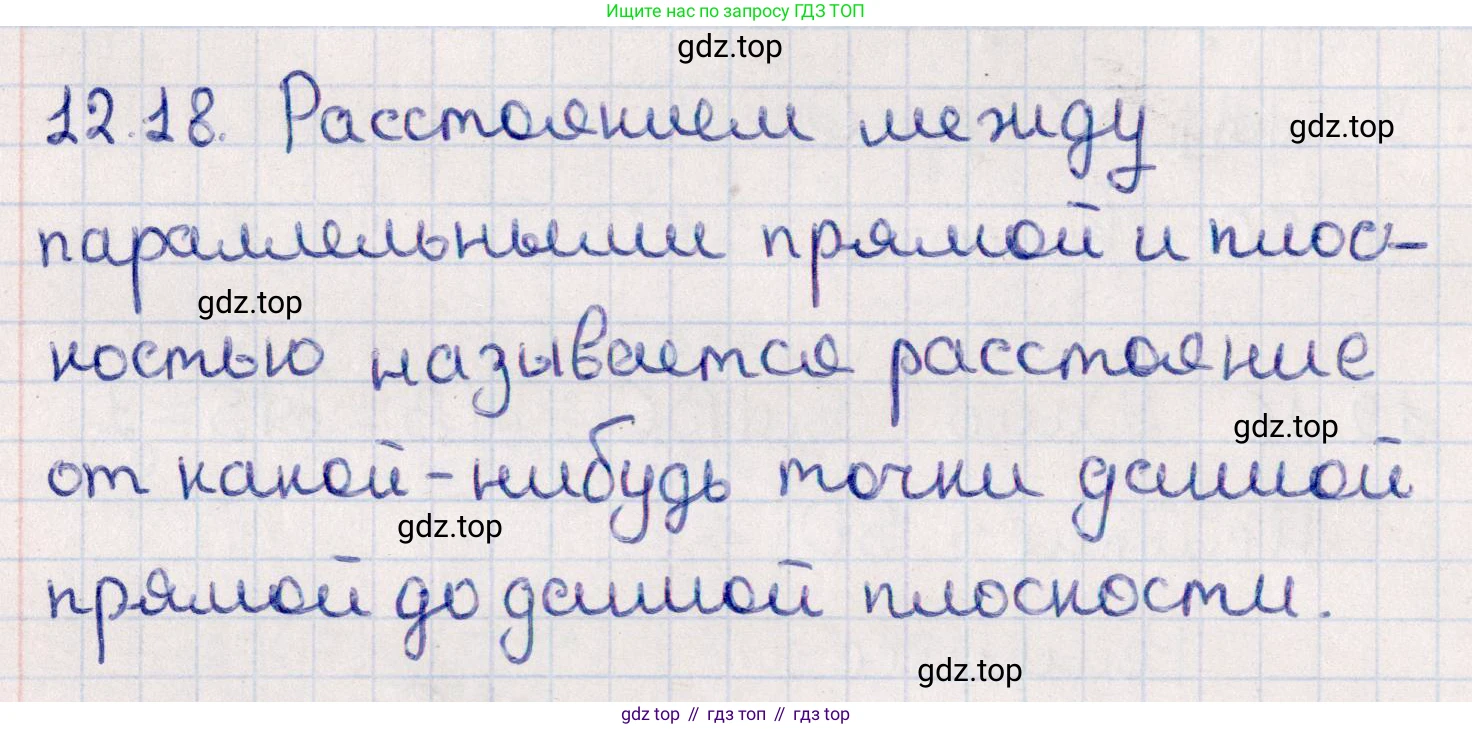 Ищите нас по запросу ГДЗ ТОП
gdz.top
12.18. Расстоянием между
gdz.top
параллельными прямой и плос-
gdz.top
костью называется расстояние
gdz.top
от какой-нибудь точки данной
gdz.top
прямой до данной плоскости.
gdz.top
gdz top // гдз топ // gdz top